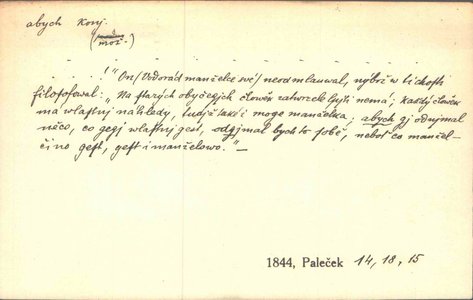 abych konj.
"On (Vodorád manželce své) neodmlauwal, nýbrž w tichosti
filosofowal: "Na starých obyčegjch člowěk zatwrzele lpjti nemá, každý člowěk
má wlastnj náhledy, tudjž také i moge manželka; abych gj odnjmal
něco, co gegj wlastnj gest, odgjmal bych to sobě, neboť co manžel-
čino gest, gest i manželowo." —
1844, Paleček 14, 18, 15